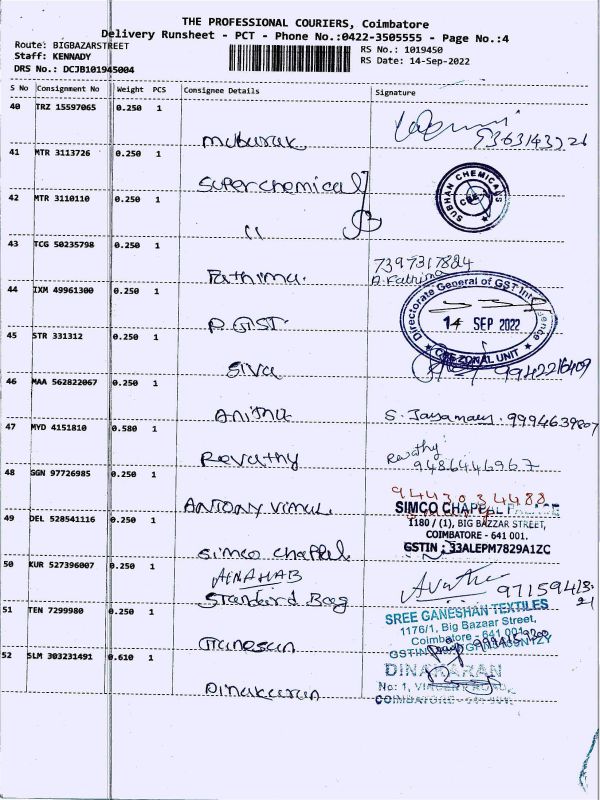 THE PROFESSIONAL COURIERS, Coimbatore
Delivery Runsheet - PCT - Phone No.:0422-3505555 - Page No.:4
Route: BIGBAZARSTREET
RS No.: 1019450
Staff: KENNADY
RS Date: 14-Sep-2022
DRS No.: DCJB101945004
S No Consignment No Weight PCS Consignee Details Signature
40 TRZ 15597065 0.250 1
mubarak 9363143226
41 MTR 3113726 0.250 1
Superchemical
SUBHAN CHEMICALS
42 MTR 3110110 0.250 1
11
43 TCG 50235798 0.250 1
Fathima. 7397317824
A. Fathima
44 IXM 49961300 0.250 1
D.GIST
Directorate General of GST Intelligence
14 SEP 2022
CBE ZONAL UNIT
45 STR 331312 0.250 1
Siva 9942216409
46 MAA 562822067 0.250 1
Anitha S. Jayamary. 9994639807
47 MYD 4151810 0.580 1
Revathy Revathy:
9486446967
48 GGN 97726985 0.250 1
ANTONY VIMAL 9443034488
49 DEL 528541116 0.250 1
Simco chappel
SIMCO CHAPPAL PALACE
1180 / (1), BIG BAZZAR STREET,
COIMBATORE - 641 001.
GSTIN : 33ALEPM7829A1ZC
50 KUR 527396007 0.250 1
AINAHAB
Standard Bag
9715941321
51 TEN 7299980 0.250 1
Ganesan
SREE GANESHAN TEXTILES
1176/1, Big Bazaar Street,
Coimbatore - 641 001
52 SLM 303231491 0.610 1
Dinakaran
DINAKARAN
No: 1,
COIMBATORE